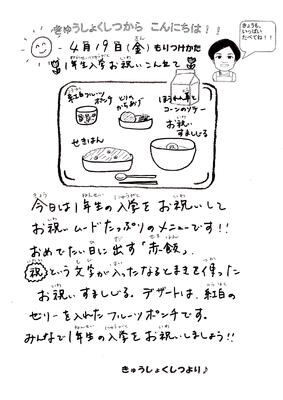 きゅうしょくしつから こんにちは！！
きょうも、
いっぱい
たべてね！！
4月19日(金) もりつけかた
1年生入学お祝いこんだて
紅白フルーツ
ポンチ
とりの
からあげ
ほうれん草と
コーンのソテー
お祝い
すましじる
せきはん
今日は1年生の入学をお祝いして
お祝いムードたっぷりのメニューです!!
おめでたい日に出す「赤飯」、
祝という文字が入ったなるとまきを使った
お祝いすましじる。デザートは、紅白の
ゼリーを入れたフルーツポンチです。
みんなで1年生の入学をお祝いしましょう!!
きゅうしょくしつより♪